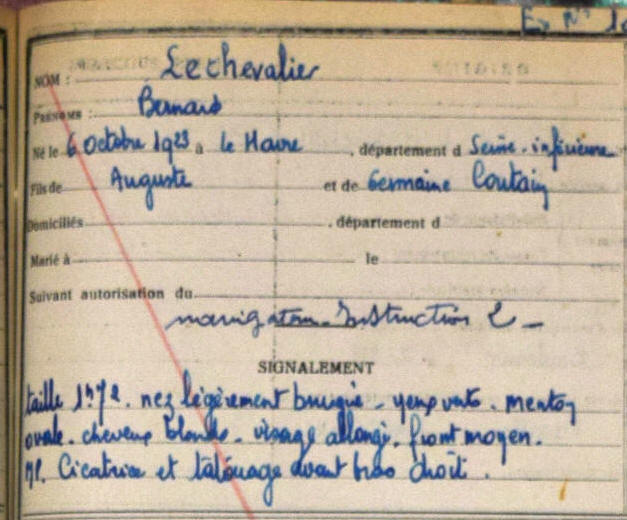 Ex N° 
NOM : Lechevalier
PRÉNOMS : Bernard
Né le 6 Octobre 1923 à le Havre, département d Seine-inférieure
Fils de Auguste et de Germaine Coutain
Domiciliés , département d
Marié à le
Suivant autorisation du
navigation Instruction
SIGNALEMENT
taille 1m72. nez légèrement busqué - yeux verts. menton
ovale. cheveux blonds. visage allongé. front moyen.
MP. Cicatrice et tatouage avant bras droit.